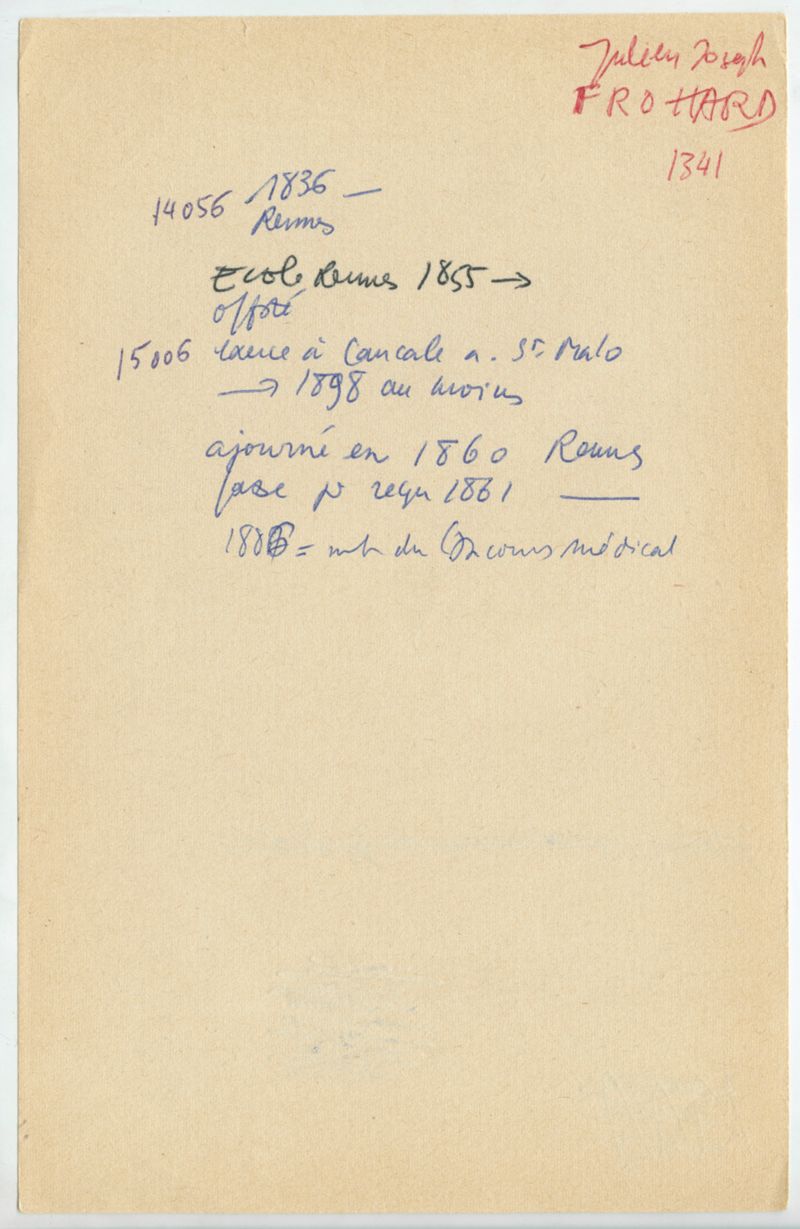 Julien Joseph
FROHARD
1341
1836 —
14056
Rennes
Ecole Rennes 1855 →
off sté
15006 exerce à Cancale a. St Malo
→ 1898 au moins
ajourné en 1860 Rennes
reçu 1861 —
= mb du Concours médical